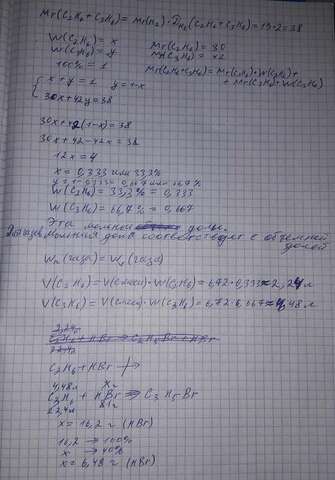 Mr(C2H6+C3H6)= Mr(H2)·DH2(C2H6+C3H6)=19·2=38
W(C2H6)=x Mr(C2H6)=30
W(C3H6)=y Mr(C3H6)=42
100%=1 Mr(C2H6+C3H6)=Mr(C2H6)·W(C2H6)+
+ Mr(C3H6)·W(C3H6)
x+y=1 y=1-x
30x+42y=38
30x+42(1-x)=38
30x+42-42x=38
12x=4
x=0,333 или 33,3%
y=1-0,333= 0,667 или 66,7%
W(C2H6)=33,3%=0,333
W(C3H6)=66,7%=0,667
Эта мольная доли.
Для газов, мольная доля соответствует с объемной
долей
Wn(газа)=Wv(газа)
V(C2H6)=V(смеси)·W(C2H6)=6,72·0,333≈2,24л
V(C3H6)=V(смеси)·W(C3H6)=6,72·0,667≈4,48л
C2H6+HBr
4,48л xг
C3H6 + HBr = C3H5Br
22,4л 81г
x=16,2 г (HBr)
16,2 → 100%
x → 40%
x=6,48 г (HBr)